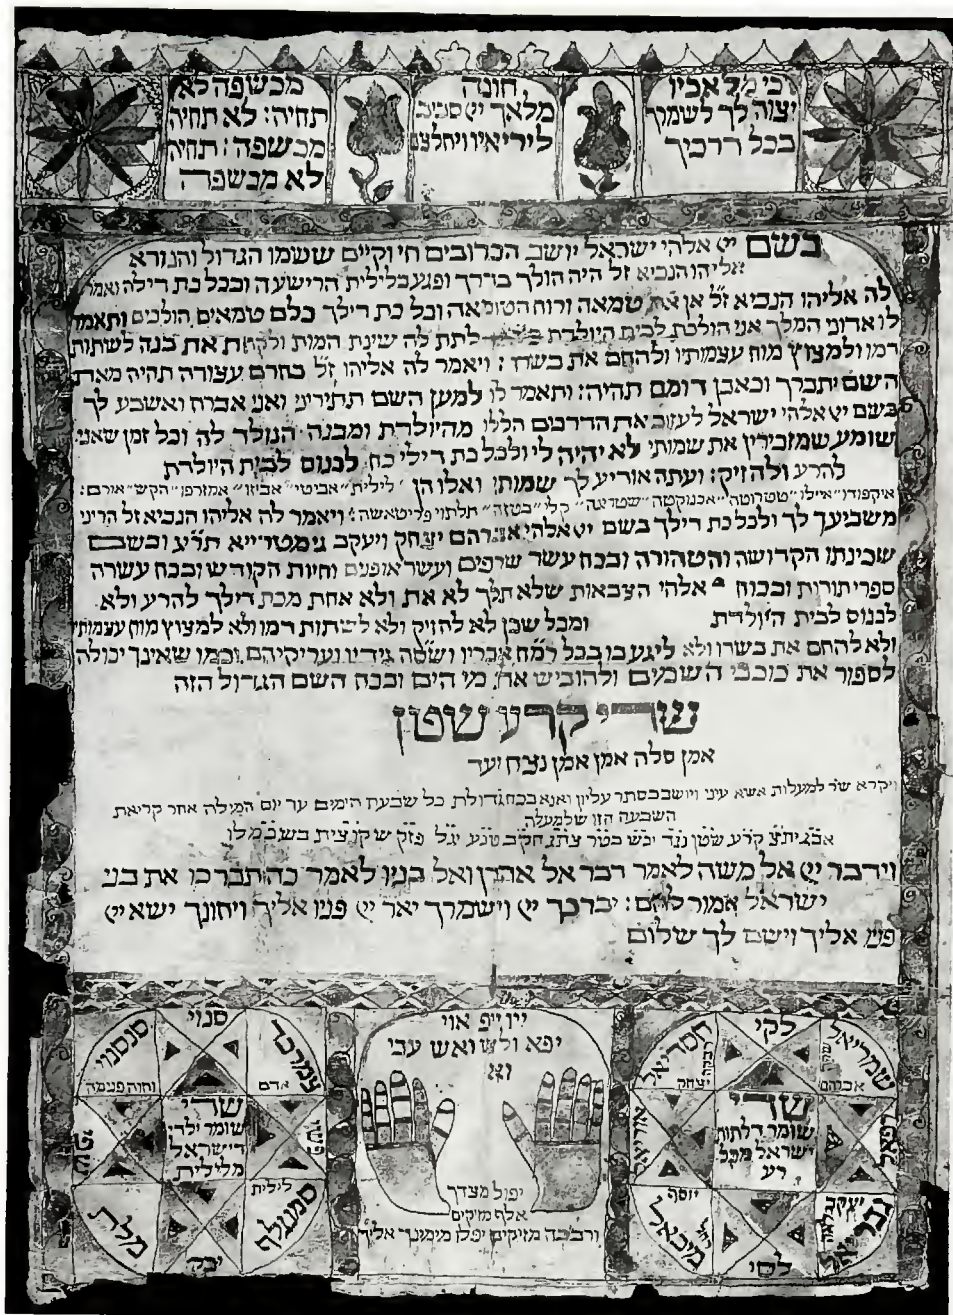 כי מלאכיו
יצוה לך לשמרך
בכל דרכיך
חונה
מלאך יי סביב
ליריאיו ויחלצם
מכשפה לא
תחיה: לא תחיה
מכשפה: תחיה
לא מכשפה
בשם יי אלהי ישראל יושב הכרובים חי וקיים ששמו הגדול והנורא
אליהו הנביא זל היה הולך בדרך ופגע בלילית הרישעה ובכל כת דילה ואמר
לה אליהו הנביא ז"ל אן את טמאה ורוח הטומאה וכל כת דילך כלם טמאים הולכים ותאמר
לו אדוני המלך אני הולכת לבית היולדת לתת לה שינת המות ולקחת את בנה לשתות
דמו ולמצוץ מוח עצמותיו ולחתם את בשרו: ויאמר לה אליהו ז"ל בחרם עצורה תהיה מאת
השם יתברך וכאבן דומם תהיה: ותאמר לו למען השם תתירני ואני אברח ואשבע לך
בשם יי אלהי ישראל לעזוב את הדרכים הללו מהיולדת ומבנה הנולד לה וכל זמן שאני
שומע שמזכירין את שמותי לא יהיה לי ולכל כת דילי כח לכנוס לבית היולדת
להרע ולהזיק: ועתה אודיע לך שמותי ואלו הן לילית אביטי אביזו אמזרפו הקש אודם
איקפודו איילו טטרוטה אבנוקטה שטרינה קלי בטזה תלתוי פריטאשה: ויאמר לה אליהו הנביא זל הריני
משביעך לך ולכל כת דילך בשם יי אלהי אברהם יצחק ויעקב גימטרייא תרי"ע ובשם
שכינתו הקדושה והטהורה ובכח עשר שרפים ועשר אופנים וחיות הקודש ובכח עשרה
ספרי תורות ובכוח אלהי הצבאות שלא תלך לא את ולא אחת מכת דילך להרע ולא
לכנוס לבית היולדת ומכל שכן לא להזיק ולא לשתות דמו ולא למצוץ מוח עצמותיו
ולא לחתם את בשרו ולא ליגע בו בכל רמ"ח אבריו ושס"ה גידיו ועריקיהם. וכמו שאינך יכולה
לספור את כוכבי השמים ולהוביש את מי הים ובכח השם הגדול הזה
שדי קרע שטן
אמן סלה אמן אמן נצח ועד
ויקרא שר למעלות אשא עיני ויושב בסתר עליון ואנא בכח גדולת כל שבעת הימים עד יום המילה אחר קריאת
השבעה הזו שלמעלה
אבגיתצ קרע שטן נגד יכש בטר צתג חקב טנע יגל פזק שקוצית בשכמלו
וידבר יי אל משה לאמר דבר אל אהרן ואל בניו לאמר כה תברכו את בני
ישראל אמור להם: יברכך יי וישמרך יאר יי פניו אליך ויחונך ישא יי
פניו אליך וישם לך שלום
שמריאל
לקי
חסדיאל
אברהם
יצחק
רבקה
רפאל
אוריאל
שדי
שומר דלתות
ישראל מכל
רע
יעקב
יוסף
רחל
גבריאל
לסי
מיכאל
יפול מצדך
אלף מזיקים
ורבבה מזיקים יפלו מימינך אליך
צמרכד
סנוי
סנסנוי
אדם
וחוה פנמה
שדי
שומר ילדי
דישראל
מלילית
לילית
סמנגלף
יבק
מלת